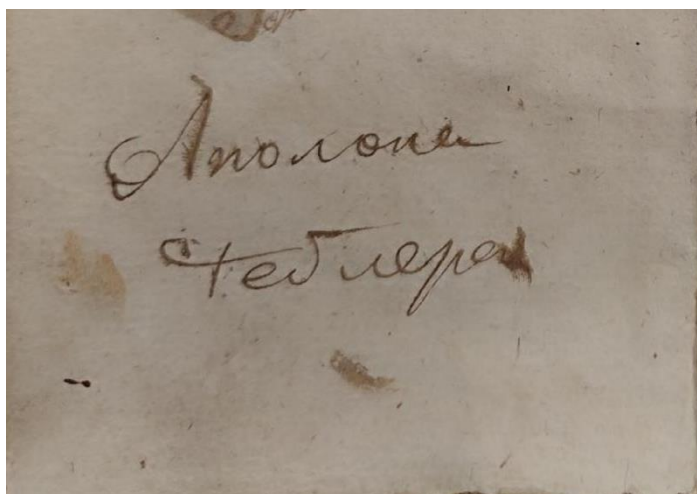 Аполона
Геблера